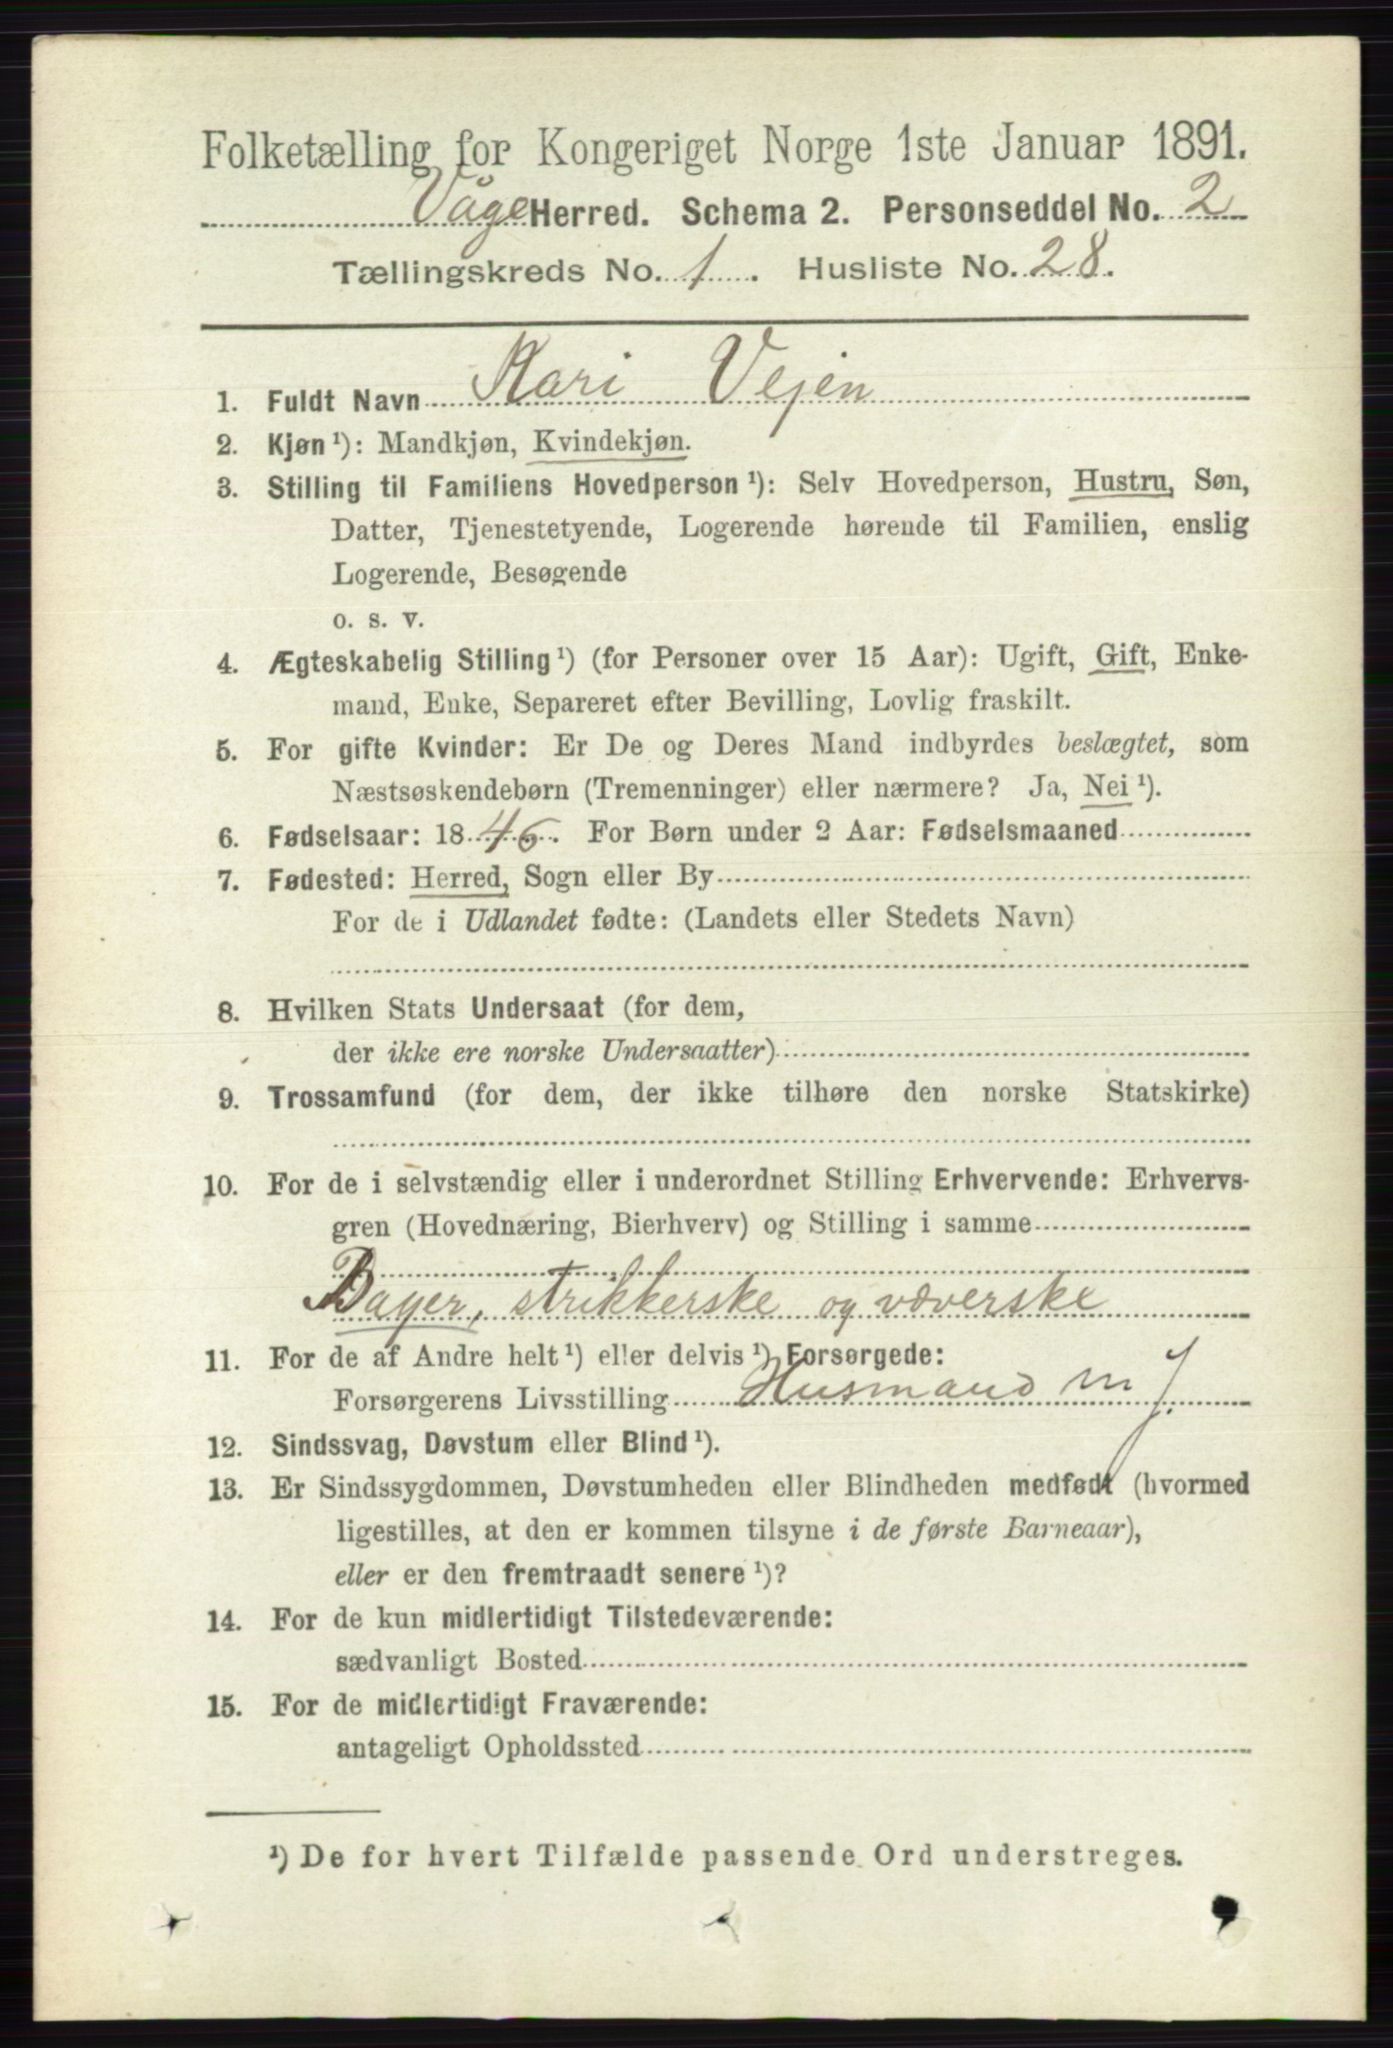 Folketælling for Kongeriget Norge 1ste Januar 1891.
Våge Herred. Schema 2. Personseddel No. 2
Tællingskreds No. 1. Husliste No. 28.
1. Fuldt Navn Kari Vejen
2. Kjøn ¹): Mandkjøn, Kvindekjøn.
3. Stilling til Familiens Hovedperson ¹): Selv Hovedperson, Hustru, Søn,
Datter, Tjenestetyende, Logerende hørende til Familien, enslig
Logerende, Besøgende
o. s. v.
4. Ægteskabelig Stilling ¹) (for Personer over 15 Aar): Ugift, Gift, Enke-
mand, Enke, Separeret efter Bevilling, Lovlig fraskilt.
5. For gifte Kvinder: Er De og Deres Mand indbyrdes beslægtet, som
Næstsøskendebørn (Tremenninger) eller nærmere? Ja, Nei ¹).
6. Fødselsaar: 1846. For Børn under 2 Aar: Fødselsmaaned
7. Fødested: Herred, Sogn eller By
For de i Udlandet fødte: (Landets eller Stedets Navn)
8. Hvilken Stats Undersaat (for dem,
der ikke ere norske Undersaatter)
9. Trossamfund (for dem, der ikke tilhøre den norske Statskirke)
10. For de i selvstændig eller i underordnet Stilling Erhvervende: Erhvervs-
gren (Hovednæring, Bierhverv) og Stilling i samme
Bager, strikkerske og væverske
11. For de af Andre helt ¹) eller delvis ¹) Forsørgede:
Forsørgerens Livsstilling Husmand m J.
12. Sindssvag, Døvstum eller Blind ¹).
13. Er Sindssygdommen, Døvstumheden eller Blindheden medfødt (hvormed
ligestilles, at den er kommen tilsyne i de første Barneaar),
eller er den fremtraadt senere ¹)?
14. For de kun midlertidigt Tilstedeværende:
sædvanligt Bosted
15. For de midlertidigt Fraværende:
antageligt Opholdssted
¹) De for hvert Tilfælde passende Ord understreges.